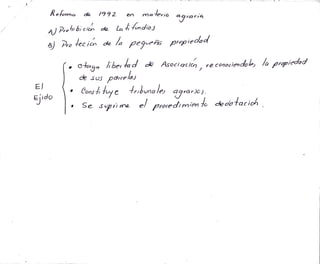 Reforma de 1992 en materia agraria
A) Prohibición de Latifundios
B) Protección de la pequeña propiedad
El Ejido
• Otorga libertad de Asociación, reconociendoles la propiedad
de sus parcelas
• Constituye tribunales agrarios.
• Se suprime el procedimiento de dotación.